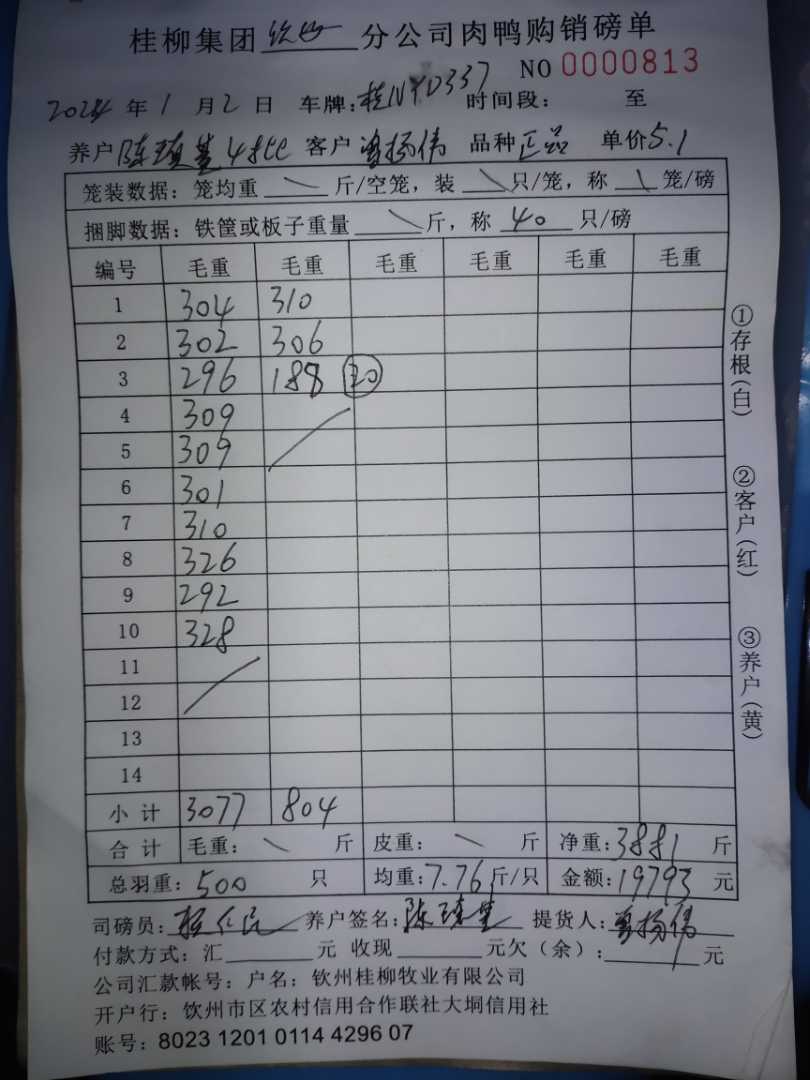 桂柳集团 钦州 分公司肉鸭购销磅单
NO 0000813
2024 年 1 月 2 日 车牌: 桂NYD337 时间段: 至
养户 陈琼基4批 客户 曾杨伟 品种 正品 单价 5.1
笼装数据: 笼均重 \ 斤/空笼, 装 \ 只/笼, 称 \ 笼/磅
捆脚数据: 铁筐或板子重量 \ 斤, 称 40 只/磅
编号 毛重 毛重 毛重 毛重 毛重 毛重
1 304 310
2 302 306
3 296 188 20
4 309
5 309
6 301
7 310
8 326
9 292
10 328
11
12
13
14
小计 3077 804
合计 毛重: \ 斤 皮重: \ 斤 净重: 3881 斤
总羽重: 500 只 均重: 7.76 斤/只 金额: 19793 元
司磅员: 养户签名: 陈琼基 提货人: 曾杨伟
付款方式: 汇 元 收现 元欠(余): 元
公司汇款帐号: 户名: 钦州桂柳牧业有限公司
开户行: 钦州市区农村信用合作联社大垌信用社
账号: 8023 1201 0114 4296 07
①存根(白)
②客户(红)
③养户(黄)